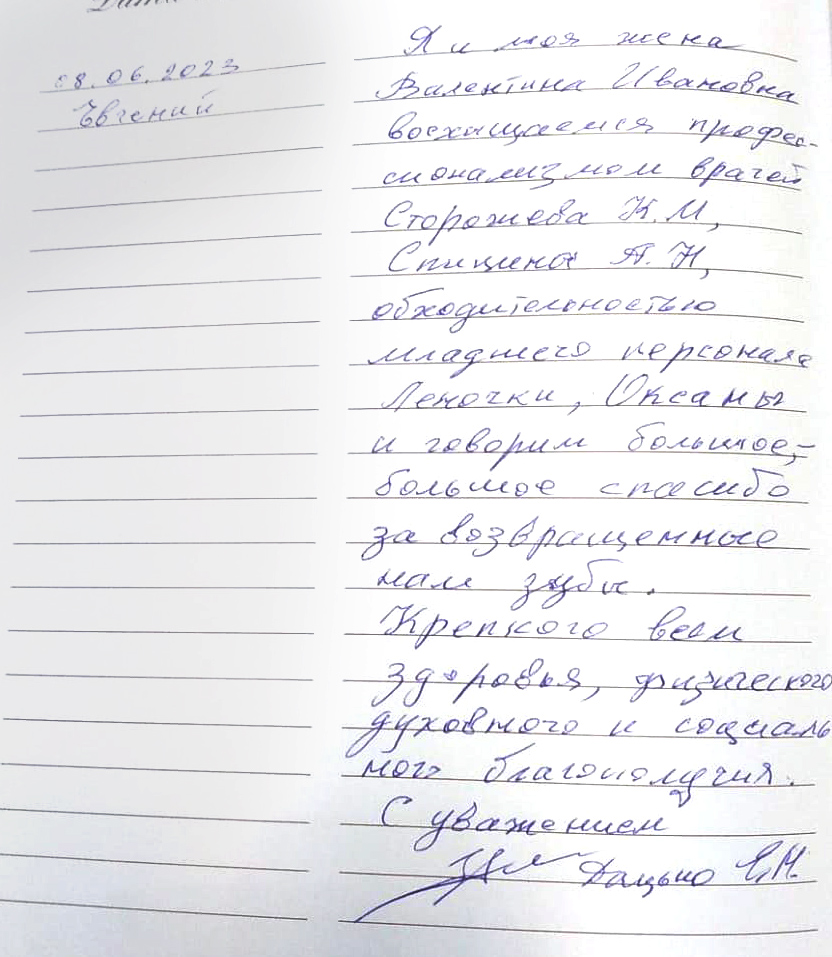 08.06.2023
Евгений
Я и моя жена
Валентина Ивановна
восхищаемся профес-
сионализмом врачей
Сторожева К.И,
Спицина А.Н,
обходительностью
младшего персонала
Леночки, Оксаны
и говорим большое,-
большое спасибо
за возвращенные
нам зубы.
Крепкого всем
здоровья, физического
духовного и социаль
ного благополучия.
С уважением
Дацько Е.Н.